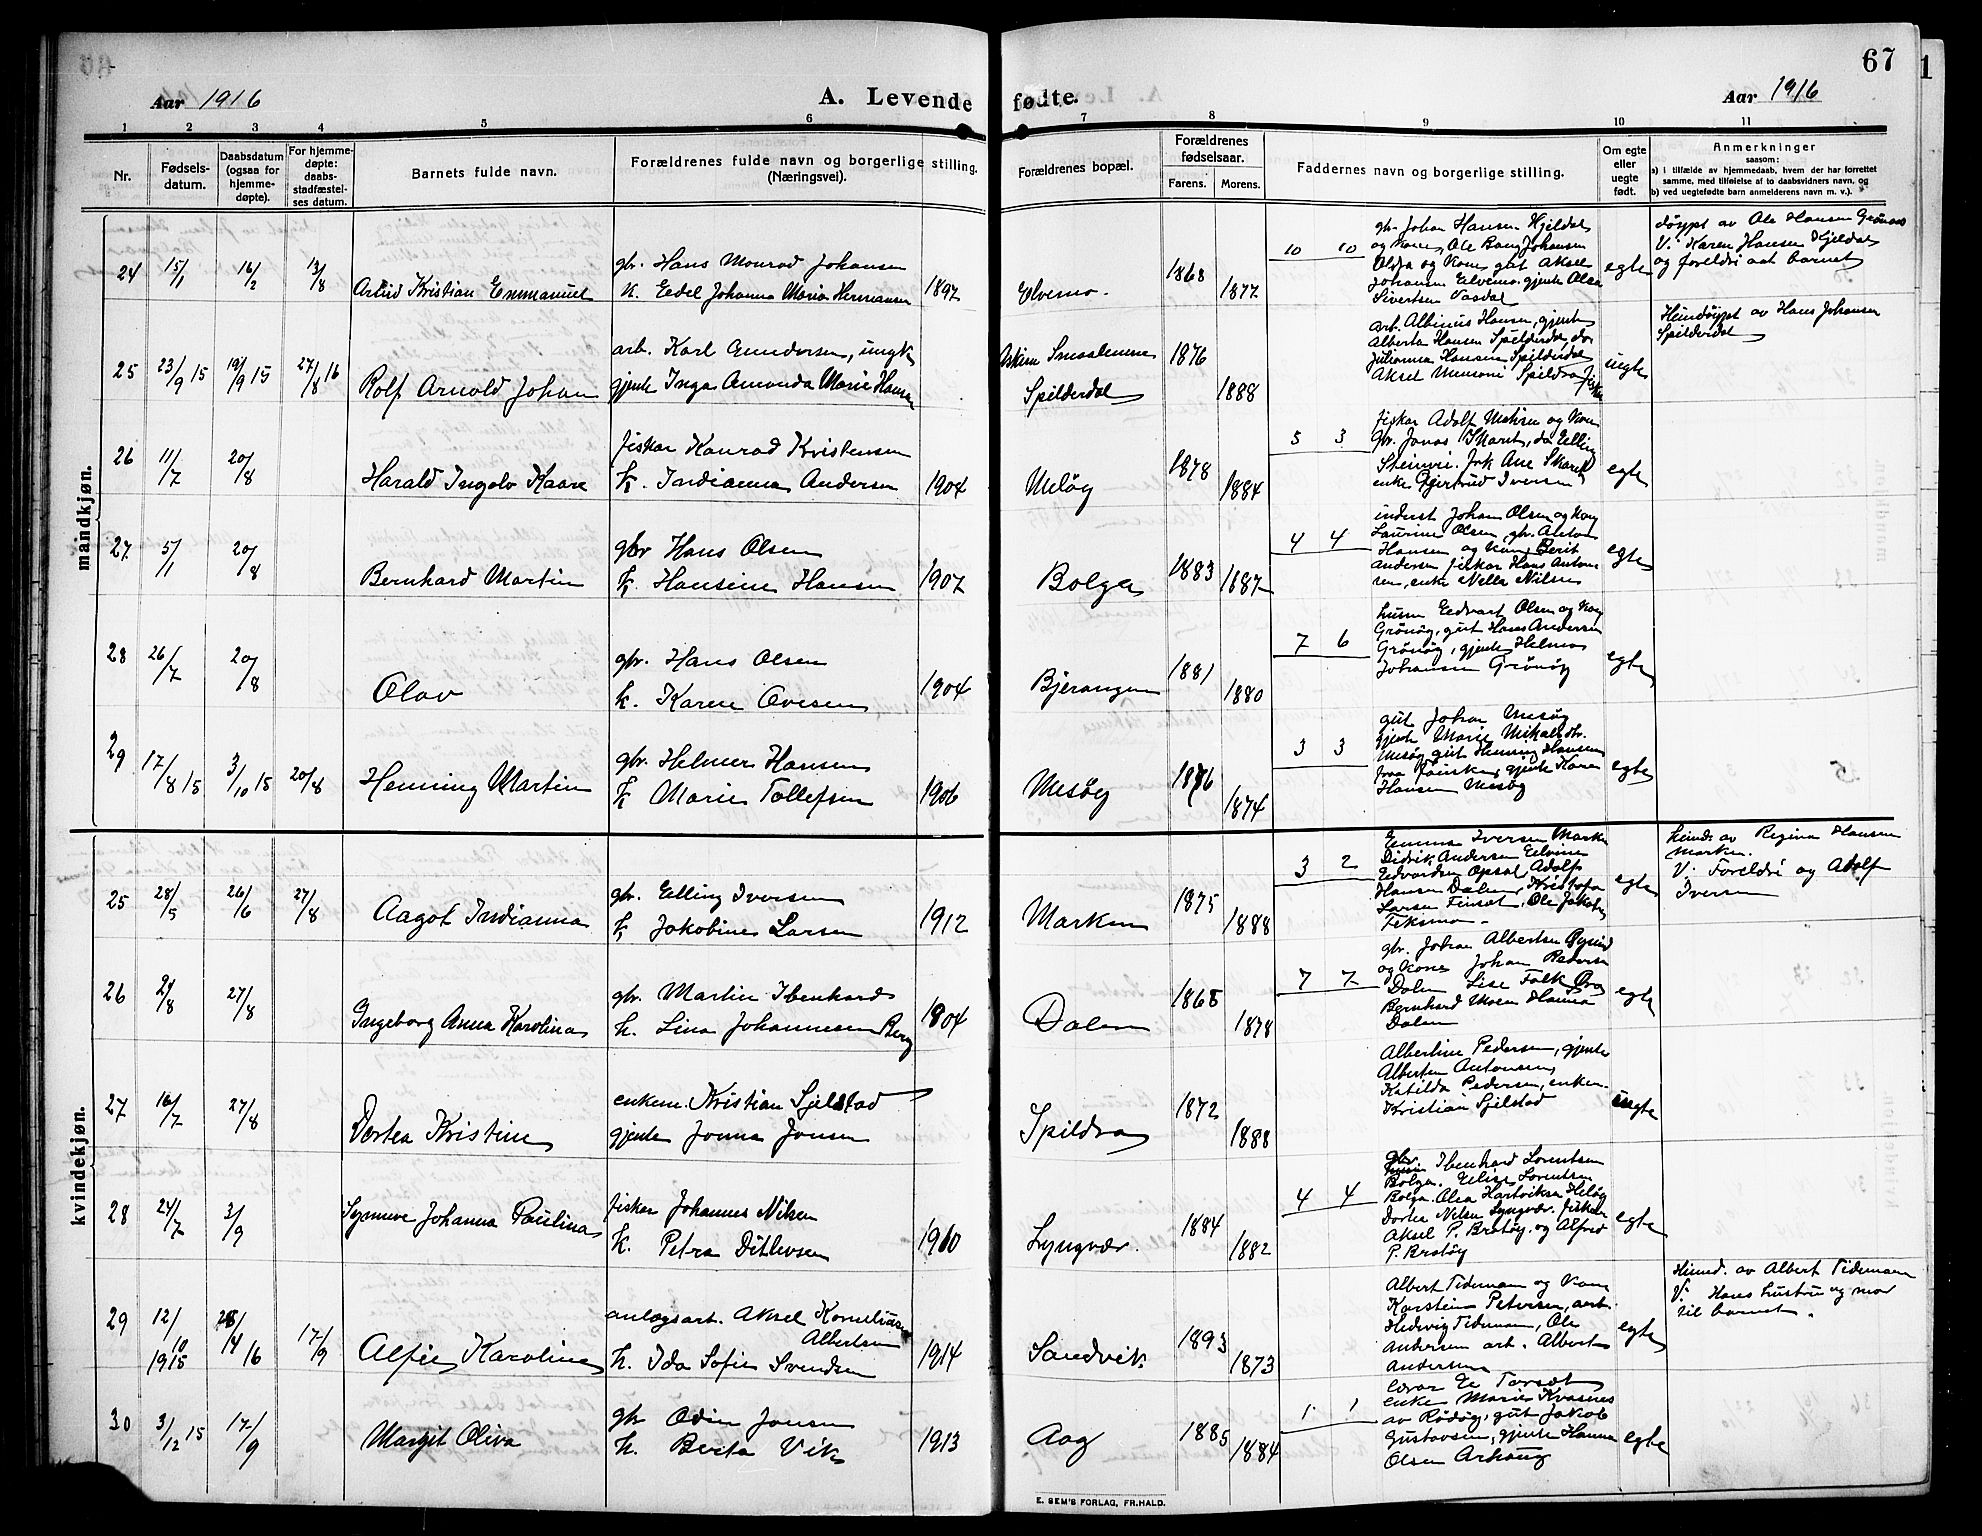 67
Aar 1916
A. Levende fødte.
Aar 1916
1 2 3 4 5 6 7 8 9 10 11
Nr.
Fødsels-
datum.
Daabsdatum
(ogsaa for
hjemme-
døpte).
For hjemme-
døpte:
daabs-
stadfæstel-
ses datum.
Barnets fulde navn.
Forældrenes fulde navn og borgerlige stilling.
(Næringsvei).
Forældrenes bopæl.
Forældrenes
fødselsaar.
Farens. Morens.
Faddernes navn og borgerlige stilling.
Om egte
eller
uegte
født.
Anmerkninger
saasom:
a) i tilfælde av hjemmedaab, hvem der har forrettet
samme, med tilføielse af to daabsvidners navn, og
b) ved uegtefødte barn anmelderens navn m. v.).
mandkjøn.
24 15/1 16/2 13/8
Arlid Kristian Emmanuel
gbr. Hans Monrad Johansen
k. Edel Johanna Maria Hermansen 1897
Elvemo. 1868 1877
10 10
gbr. Johan Hansen Kjeldal
og kone, Ole Bang Johansen
og kone gut Aksel
Johansen Elvemo. gjente Olea
Sivertsen Vasdal
egte
døypt av Ole Hansen Grønaas
V. Karen Hansen Kjeldal
og foreldri aat barnet
25 23/9 15 19/9 15 27/8 16
Rolf Arnold Johan
arb. Karl Gundersen, ungk.
gjente Inga Amanda Marie Hansen
Askim Smaalenene
Spilderdal
1876 1888
arb. Albinus Hansen, gjente
Alberta Hansen Spilderdal, do
Julianna Hansen Spilderdal
Aksel Spildra fisker
uegte
Heimdøypt av Hans Johansen
Spilderdal
26 11/7 20/8
Harald Ingolv Kaare
fiskar Konrad Kristensen
k. Indianna Andersen 1904
Meløy 1878 1884
5 3
fiskar Adolf og kone
gbr. Jonas Skaret, do Elling
Steinvi. Ane Skaret
enke Gjertrud Iversen
egte
27 5/1 20/8
Bernhard Martin
gbr Hans Olsen
k. Hansine Hansen 1907
Bolga 1883 1887
4 4
inderst Johan Olsen og kone
Laurine Olsen, gbr. Anton
Hansen og kone Berit
Andersen fiskar Hans Anton-
sen, enke Nella Nilsen
egte
28 26/7 20/8
Olav
gbr. Hans Olsen
k. Karen Ovesen 1904
Bjerangen 1881 1880
7 6
husm Edvart Olsen og kone
Grønøy, gut Hans Andersen
Grønøy, gjente Helma
Johansen Grønøy
egte
29 17/8 15 3/10 15 20/8
Henning Martin
gbr. Helmer Hansen
k. Marie Tollefsen 1906
Mesøy 1876 1874
3 3
gut Johan Mesøy
gjente Marie Mikalsdtr.
Mesøy gut Henning Hansen
gjente Karen
Hansen Mesøy
egte
kvindekjøn.
25 28/5 26/6 27/8
Aagot Indianna
gbr. Elling Iversen
k. Jakobine Larsen 1912
Marken 1875 1888
3 2
Emma Iversen Marken
Didrik Andersen Edvine
Edvardsen Opsal, Adolf
Hansen Dalen, Kristofa
Larsen Finset, Ole Jakobs
Teksmo.
egte
heimd. av Regina Hansen
Marken.
V. Foreldri og Adolf
Iversen
26 29/8 27/8
Ingeborg Anna Karolina
gbr. Martin Ibenhard
k. Lina Johannesen Berg 1904
Dalen 1868 1878
7 7
gbr. Johan Albertsen
og kone Johan Pedersen
Dalen Lise Falk
Bernhard Moen Hanna
Dalen
egte
27 16/7 27/8
Dortea Kristine
enkem. Kristian Sjelstad
gjente Jonna Jonsen
Spildra 1872 1888
Albertine Pedersen, gjente
Alberten Antonsen
Katilda Pedersen, enkem.
Kristian Sjelstad
uegte
28 24/7 3/9
Synneve Johanna Paulina
fiskar Johannes Nilsen
k. Petra Ditlevsen 1910
Lyngvær. 1884 1882
4 4
gbr. Ibenhard Lorentsen
Bolga. Elise Lorentsen
Bolga. Olea Hartviksen Meløy
Dortea Nilsen Lyngvær. fiskar
Aksel P. Brotøy. og Alfred
P. Brotøy
egte
29 12/10 1915 /4 16 17/9
Alfie Karoline
anlægsarb. Aksel Kornelius
Albertsen
k. Ida Sofie Svendsen 1914
Sandvik 1893 1873
Albert Tidemann og kone
Karstein Petersen, arb.
Hedvig Tidemann, Ole
Andersen arb. Albert
Andersen
egte
Heimd. av Albert Tidemann
V. Hans hustru og mor
til barnet.
30 3/12 15 17/9
Margit Oliva
gbr Odin Jensen
k. Berita Vik 1913
Aag 1885 1884
1 1
lærar E. Torset
enke Marie Kvasnes
av Rødøy, gut Jakob
Gustavsen, gjente Hanna
Olsen Arhaug
egte
E. SEM'S FORLAG, FR.HALD.